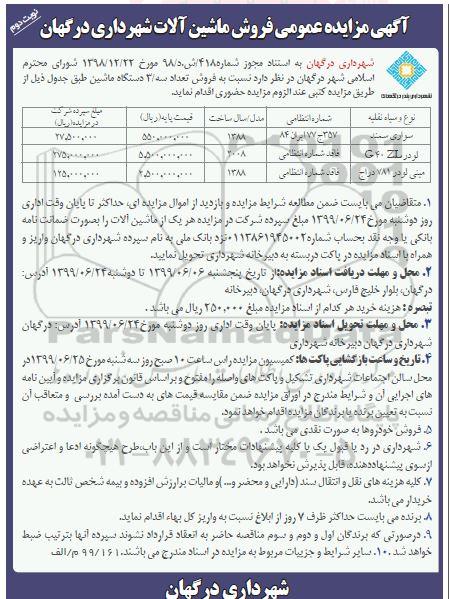 نوبت دوم
آگهی مزایده عمومی فروش ماشین آلات شهرداری درگهان
شهرداری درگهان به استناد مجوز شماره ۴۱۸/ش.د/۹۸ مورخ ۱۳۹۸/۱۲/۲۲ شورای محترم
اسلامی شهر درگهان در نظر دارد نسبت به فروش تعداد سه/۳ دستگاه ماشین طبق جدول ذیل از
طریق مزایده کتبی عندالزوم مزایده حضوری اقدام نماید.
نوع و سیاه نقلیه شماره انتظامی مدل/سال ساخت قیمت پایه (ریال) مبلغ سپرده شرکت در مزایده (ریال)
سواری سمند ۳۵۷ج۷۷ایران۸۴ ۱۳۸۸ ۵۵۰،۰۰۰،۰۰۰ ۲۷،۵۰۰،۰۰۰
لودر G ۴۰ ZL فاقد شماره انتظامی ۲۰۰۸ ۵،۵۰۰،۰۰۰،۰۰۰ ۲۷۵،۰۰۰،۰۰۰
مینی لودر ۷۸۱ دراج فاقد شماره انتظامی ۱۳۸۸ ۲،۵۰۰،۰۰۰،۰۰۰ ۱۲۵،۰۰۰،۰۰۰
۱. متقاضیان می بایست ضمن مطالعه شرایط مزایده و بازدید از اموال مزایده ای، حداکثر تا پایان وقت اداری
روز دوشنبه مورخ ۱۳۹۹/۰۶/۲۴ مبلغ سپرده شرکت در مزایده هر یک از ماشین آلات را بصورت ضمانت نامه
بانکی یا وجه نقد بحساب شماره ۰۱۱۳۸۶۱۹۴۵۰۰۲ نزد بانک ملی به نام سپرده شهرداری درگهان واریز و
همراه با اسناد مزایده در پاکت دربسته به دبیرخانه شهرداری تحویل نمایید.
۲. محل و مهلت دریافت اسناد مزایده: از تاریخ پنجشنبه ۱۳۹۹/۰۶/۰۶ تا دوشنبه ۱۳۹۹/۰۶/۲۴ آدرس:
درگهان، بلوار خلیج فارس، شهرداری درگهان، دبیرخانه
تبصره: هزینه خرید هر کدام از اسناد مزایده مبلغ ۲۵۰،۰۰۰ ریال می باشد.
۳. محل و مهلت تحویل اسناد مزایده: پایان وقت اداری روز دوشنبه مورخ ۱۳۹۹/۰۶/۲۴ آدرس: درگهان
شهرداری درگهان دبیرخانه شهرداری
۴. تاریخ و ساعت بازگشایی پاکت ها: کمیسیون مزایده راس ساعت ۱۰ صبح روز سه شنبه مورخ ۱۳۹۹/۰۶/۲۵ در
محل سالن اجتماعات شهرداری تشکیل و پاکت های واصله را مفتوح و بر اساس قانون برگزاری مزایده و آیین نامه
های اجرایی آن و شرایط مندرج در اوراق مزایده ضمن مقایسه قیمت های به دست آمده بررسی و متعاقب آن
نسبت به تعیین برنده یا برندگان مزایده اقدام خواهد نمود.
۵. فروش خودروها به صورت نقدی می باشد.
۶. شهرداری در رد یا قبول یک یا کلیه پیشنهادات مختار است و از این باب، طرح هیچگونه ادعا و اعتراضی
از سوی پیشنهاددهنده، قابل پذیرش نخواهد بود.
۷. کلیه هزینه های نقل و انتقال سند (دارایی و محضر و...) و مالیات بر ارزش افزوده و بیمه شخص ثالث به عهده
خریدار می باشد.
۸. برنده می بایست حداکثر ظرف ۷ روز از ابلاغ نسبت به واریز کل بهاء اقدام نماید.
۹. درصورتی که برندگان اول و دوم و سوم مناقصه حاضر به انعقاد قرارداد نشوند سپرده آنها بترتیب ضبط
خواهد شد. ۱۰. سایر شرایط و جزییات مربوط به مزایده در اسناد مندرج می باشند. ۹۹/۱۶۱ م/الف
شهرداری درگهان